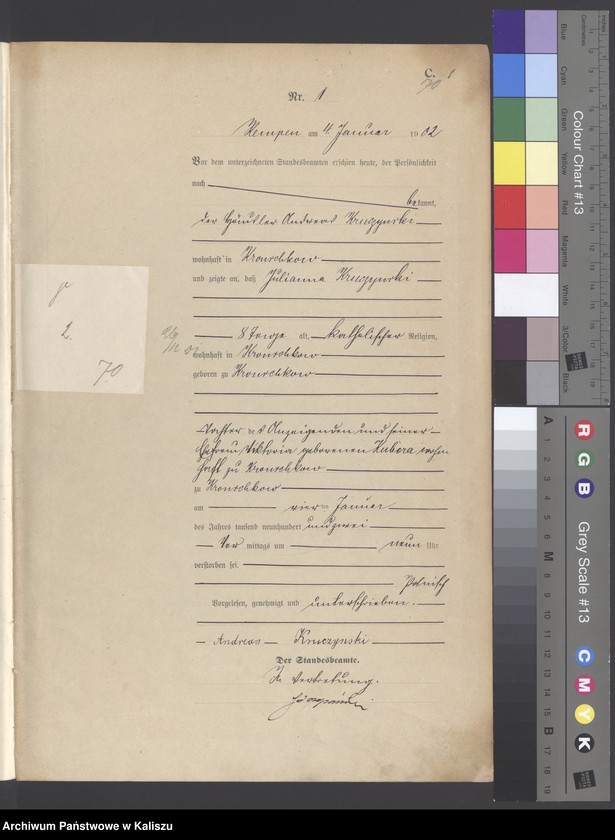 C. 1
70
Nr. 1
Kempen am 4. Januar 1902
Vor dem unterzeichneten Standesbeamten erschien heute, der Persönlichkeit
nach
bekannt,
der Häusler Andreas Kruczynski
wohnhaft in Kronschkow
und zeigte an, daß Julianna Kruczynski
8 Tage alt, katholischer Religion,
wohnhaft in Kronschkow
geboren zu Kronschkow
Tochter des Anzeigenden und seiner
Ehefrau Viktoria geborenen Kubera wohn
haft zu Kronschkow
zu Kronschkow
am vierten Januar
des Jahres tausend neunhundert und zwei
Vor mittags um neun Uhr
verstorben sei.
Polnisch
Vorgelesen, genehmigt und unterschrieben.
Andreas Kruczynski
Der Standesbeamte.
In Vertretung.
2.
70
Blue
Cyan
Green
Yellow
Red
Magenta
White
3/Color
Black
Colour Chart #13
Centimetres
Inches
R
G
B
Grey Scale #13
C
M
Y
K
A
1
2
3
4
5
6
M
8
9
10
11
12
13
14
15
B
17
18
19
Archiwum Państwowe w Kaliszu